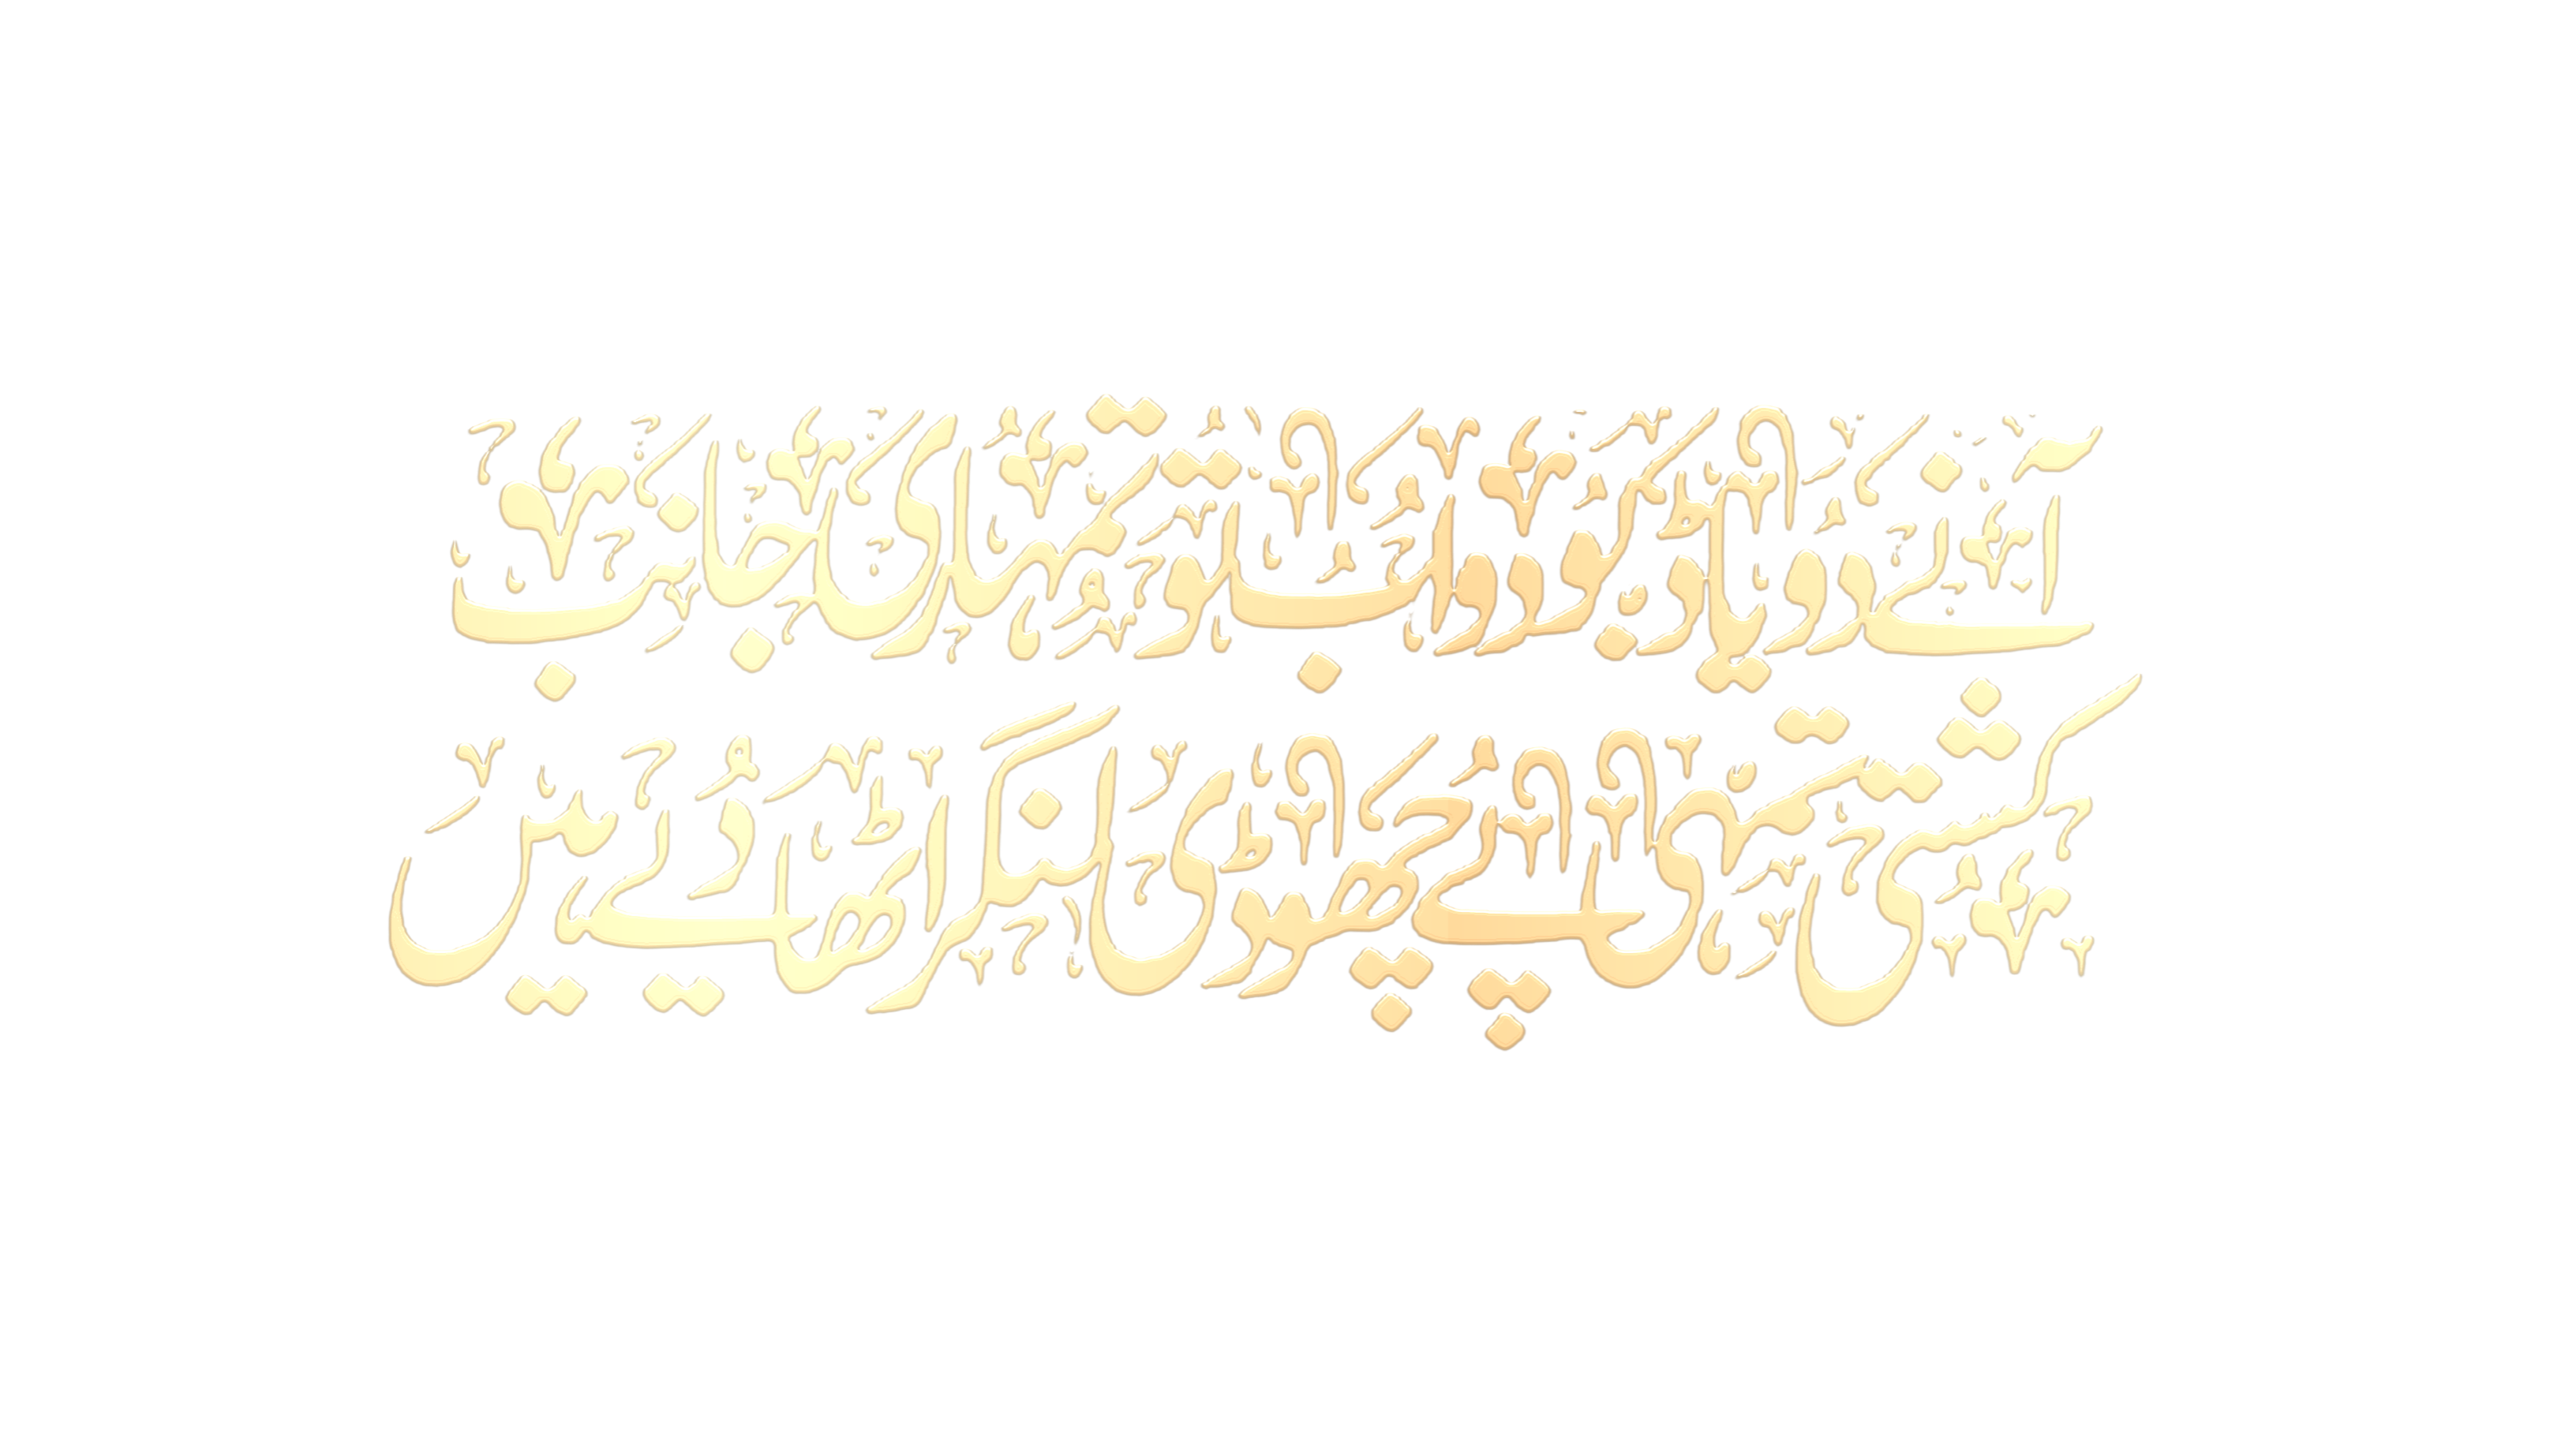 آنے دو یا ڈبو دو اب تو تمہاری جانب
کشتی تمہی پے چھوڑی لنگر اٹھا دیے ہیں